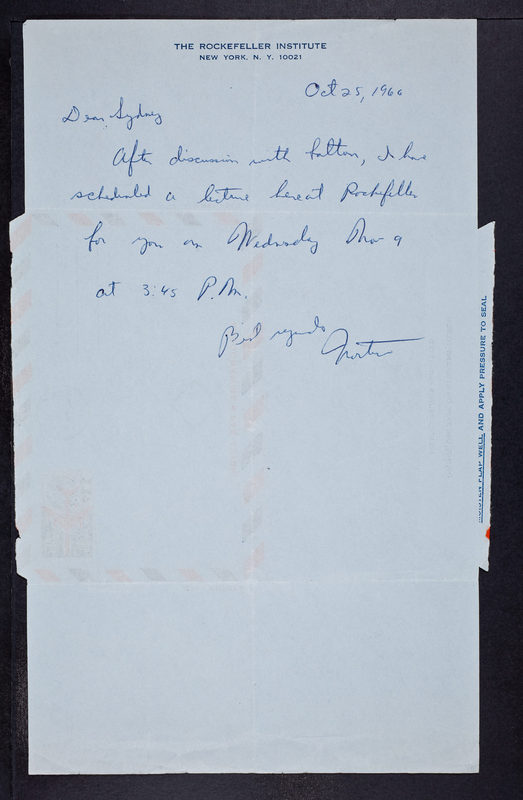 THE ROCKEFELLER INSTITUTE
NEW YORK, N. Y. 10021
Oct 25, 1966
Dear Sydney
After discussion with Fulton, I have
scheduled a lecture here at Rockefeller
for you on Wednesday Nov 9
at 3:45 P.M.
Best regards
Norton
MOISTEN FLAP WELL AND APPLY PRESSURE TO SEAL